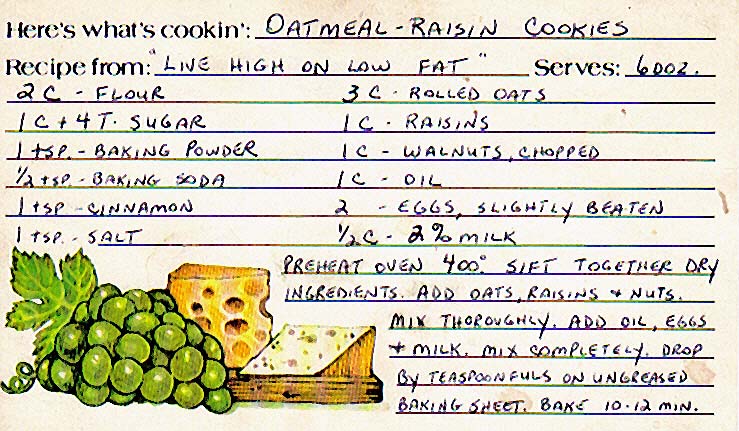 Here's what's cookin': OATMEAL-RAISIN COOKIES
Recipe from: "LIVE HIGH ON LOW FAT" Serves: 6 DOZ.
2 C - FLOUR 3 C - ROLLED OATS
1 C + 4 T. SUGAR 1 C - RAISINS
1 tSP. - BAKING POWDER 1 C - WALNUTS, CHOPPED
½ tSP. - BAKING SODA 1 C - OIL
1 tSP - CINNAMON 2 - EGGS, SLIGHTLY BEATEN
1 tSP. - SALT ½ C - 2% MILK
PREHEAT OVEN 400°. SIFT TOGETHER DRY
INGREDIENTS. ADD OATS, RAISINS + NUTS.
MIX THOROUGHLY. ADD OIL, EGGS
+ MILK. MIX COMPLETELY. DROP
BY TEASPOONFULS ON UNGREASED
BAKING SHEET. BAKE 10-12 MIN.